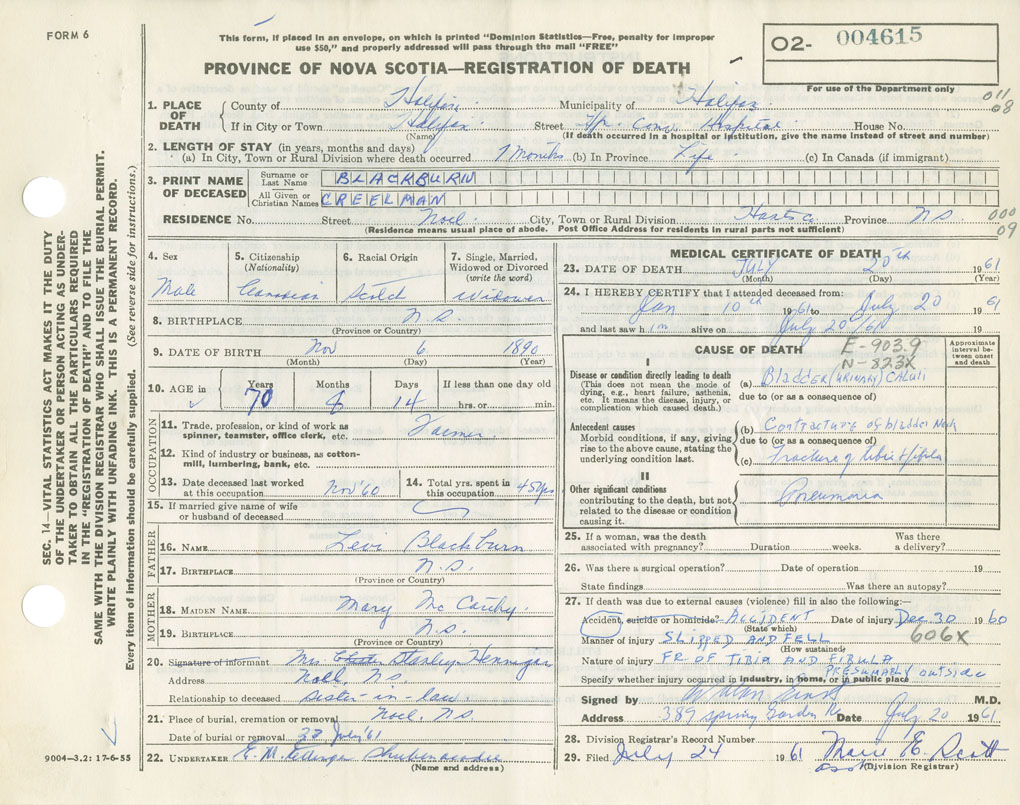 FORM 6
This form, if placed in an envelope, on which is printed "Dominion Statistics—Free, penalty for improper
use $50," and properly addressed will pass through the mail "FREE"
PROVINCE OF NOVA SCOTIA—REGISTRATION OF DEATH
O2- 004615
For use of the Department only
011
08
1. PLACE OF DEATH
County of Halifax Municipality of Halifax
If in City or Town Halifax Street Hospital House No.
(Name) (If death occurred in a hospital or institution, give the name instead of street and number)
2. LENGTH OF STAY (in years, months and days)
(a) In City, Town or Rural Division where death occurred 7 months (b) In Province Life (c) In Canada (if immigrant)
3. PRINT NAME OF DECEASED
Surname or Last Name BLACKBURN
All Given or Christian Names CREELMAN
RESIDENCE No. Street Noel City, Town or Rural Division Hants Co Province N.S.
000
09
(Residence means usual place of abode. Post Office Address for residents in rural parts not sufficient)
4. Sex Male
5. Citizenship (Nationality) Canadian
6. Racial Origin Scotch
7. Single, Married, Widowed or Divorced (write the word) Widower
8. BIRTHPLACE N.S.
(Province or Country)
9. DATE OF BIRTH Nov 6 1890
(Month) (Day) (Year)
10. AGE in Years 70 Months 8 Days 14 If less than one day old hrs. or min.
OCCUPATION
11. Trade, profession, or kind of work as spinner, teamster, office clerk, etc. Farmer
12. Kind of industry or business, as cotton-mill, lumbering, bank, etc.
13. Date deceased last worked at this occupation Nov '60
14. Total yrs. spent in this occupation 45 yrs
15. If married give name of wife or husband of deceased
FATHER
16. NAME Levi Blackburn
17. BIRTHPLACE N.S.
(Province or Country)
MOTHER
18. MAIDEN NAME Mary McCarthy
19. BIRTHPLACE N.S.
(Province or Country)
20. Signature of informant Mrs. Stanley Hennigar
Address Noel, N.S.
Relationship to deceased Sister-in-law
21. Place of burial, cremation or removal Noel, N.S.
Date of burial or removal July '61
22. UNDERTAKER E. M. Shubenacadie
(Name and address)
MEDICAL CERTIFICATE OF DEATH
23. DATE OF DEATH JULY 20th 1961
(Month) (Day) (Year)
24. I HEREBY CERTIFY that I attended deceased from:
Jan 10th 1961 to July 20 1961
and last saw him alive on July 20/61 19
CAUSE OF DEATH
E-903.9
N-823X
Approximate interval between onset and death
I
Disease or condition directly leading to death
(This does not mean the mode of dying, e.g., heart failure, asthenia, etc. It means the disease, injury, or complication which caused death.)
(a) Bladder (URINARY) CALULI
due to (or as a consequence of)
Antecedent causes
Morbid conditions, if any, giving rise to the above cause, stating the underlying condition last.
(b) Contracture of bladder Neck
due to (or as a consequence of)
(c) Fracture of tibia + fibula
II
Other significant conditions
contributing to the death, but not related to the disease or condition causing it.
Pneumonia
25. If a woman, was the death associated with pregnancy? Duration weeks. Was there a delivery?
26. Was there a surgical operation? Date of operation 19
State findings Was there an autopsy?
27. If death was due to external causes (violence) fill in also the following:—
Accident, suicide or homicide? ACCIDENT Date of injury Dec 30 1960
(State which) 606X
Manner of injury SLIPPED AND FELL
(How sustained)
Nature of injury FR OF TIBIA AND FIBULA
PRESUMABLY outside
Specify whether injury occurred in industry, in home, or in public place
Signed by M.D.
Address 389 Spring Garden Rd Date July 20 1961
28. Division Registrar's Record Number
29. Filed July 24 1961 Marie E. Scott
(Division Registrar)
SEC. 14—VITAL STATISTICS ACT MAKES IT THE DUTY
OF THE UNDERTAKER OR PERSON ACTING AS UNDER-
TAKER TO OBTAIN ALL THE PARTICULARS REQUIRED
IN THE "REGISTRATION OF DEATH" AND TO FILE THE
SAME WITH THE DIVISION REGISTRAR WHO SHALL ISSUE THE BURIAL PERMIT.
WRITE PLAINLY WITH UNFADING INK. THIS IS A PERMANENT RECORD.
Every item of information should be carefully supplied. (See reverse side for instructions.)
9004—3.2: 17-6-55